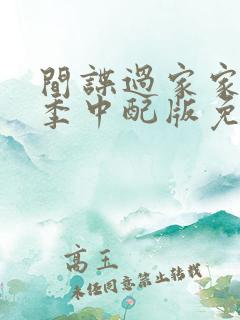 間諜過家家
季中配版免
高玉
未經同意禁止轉載